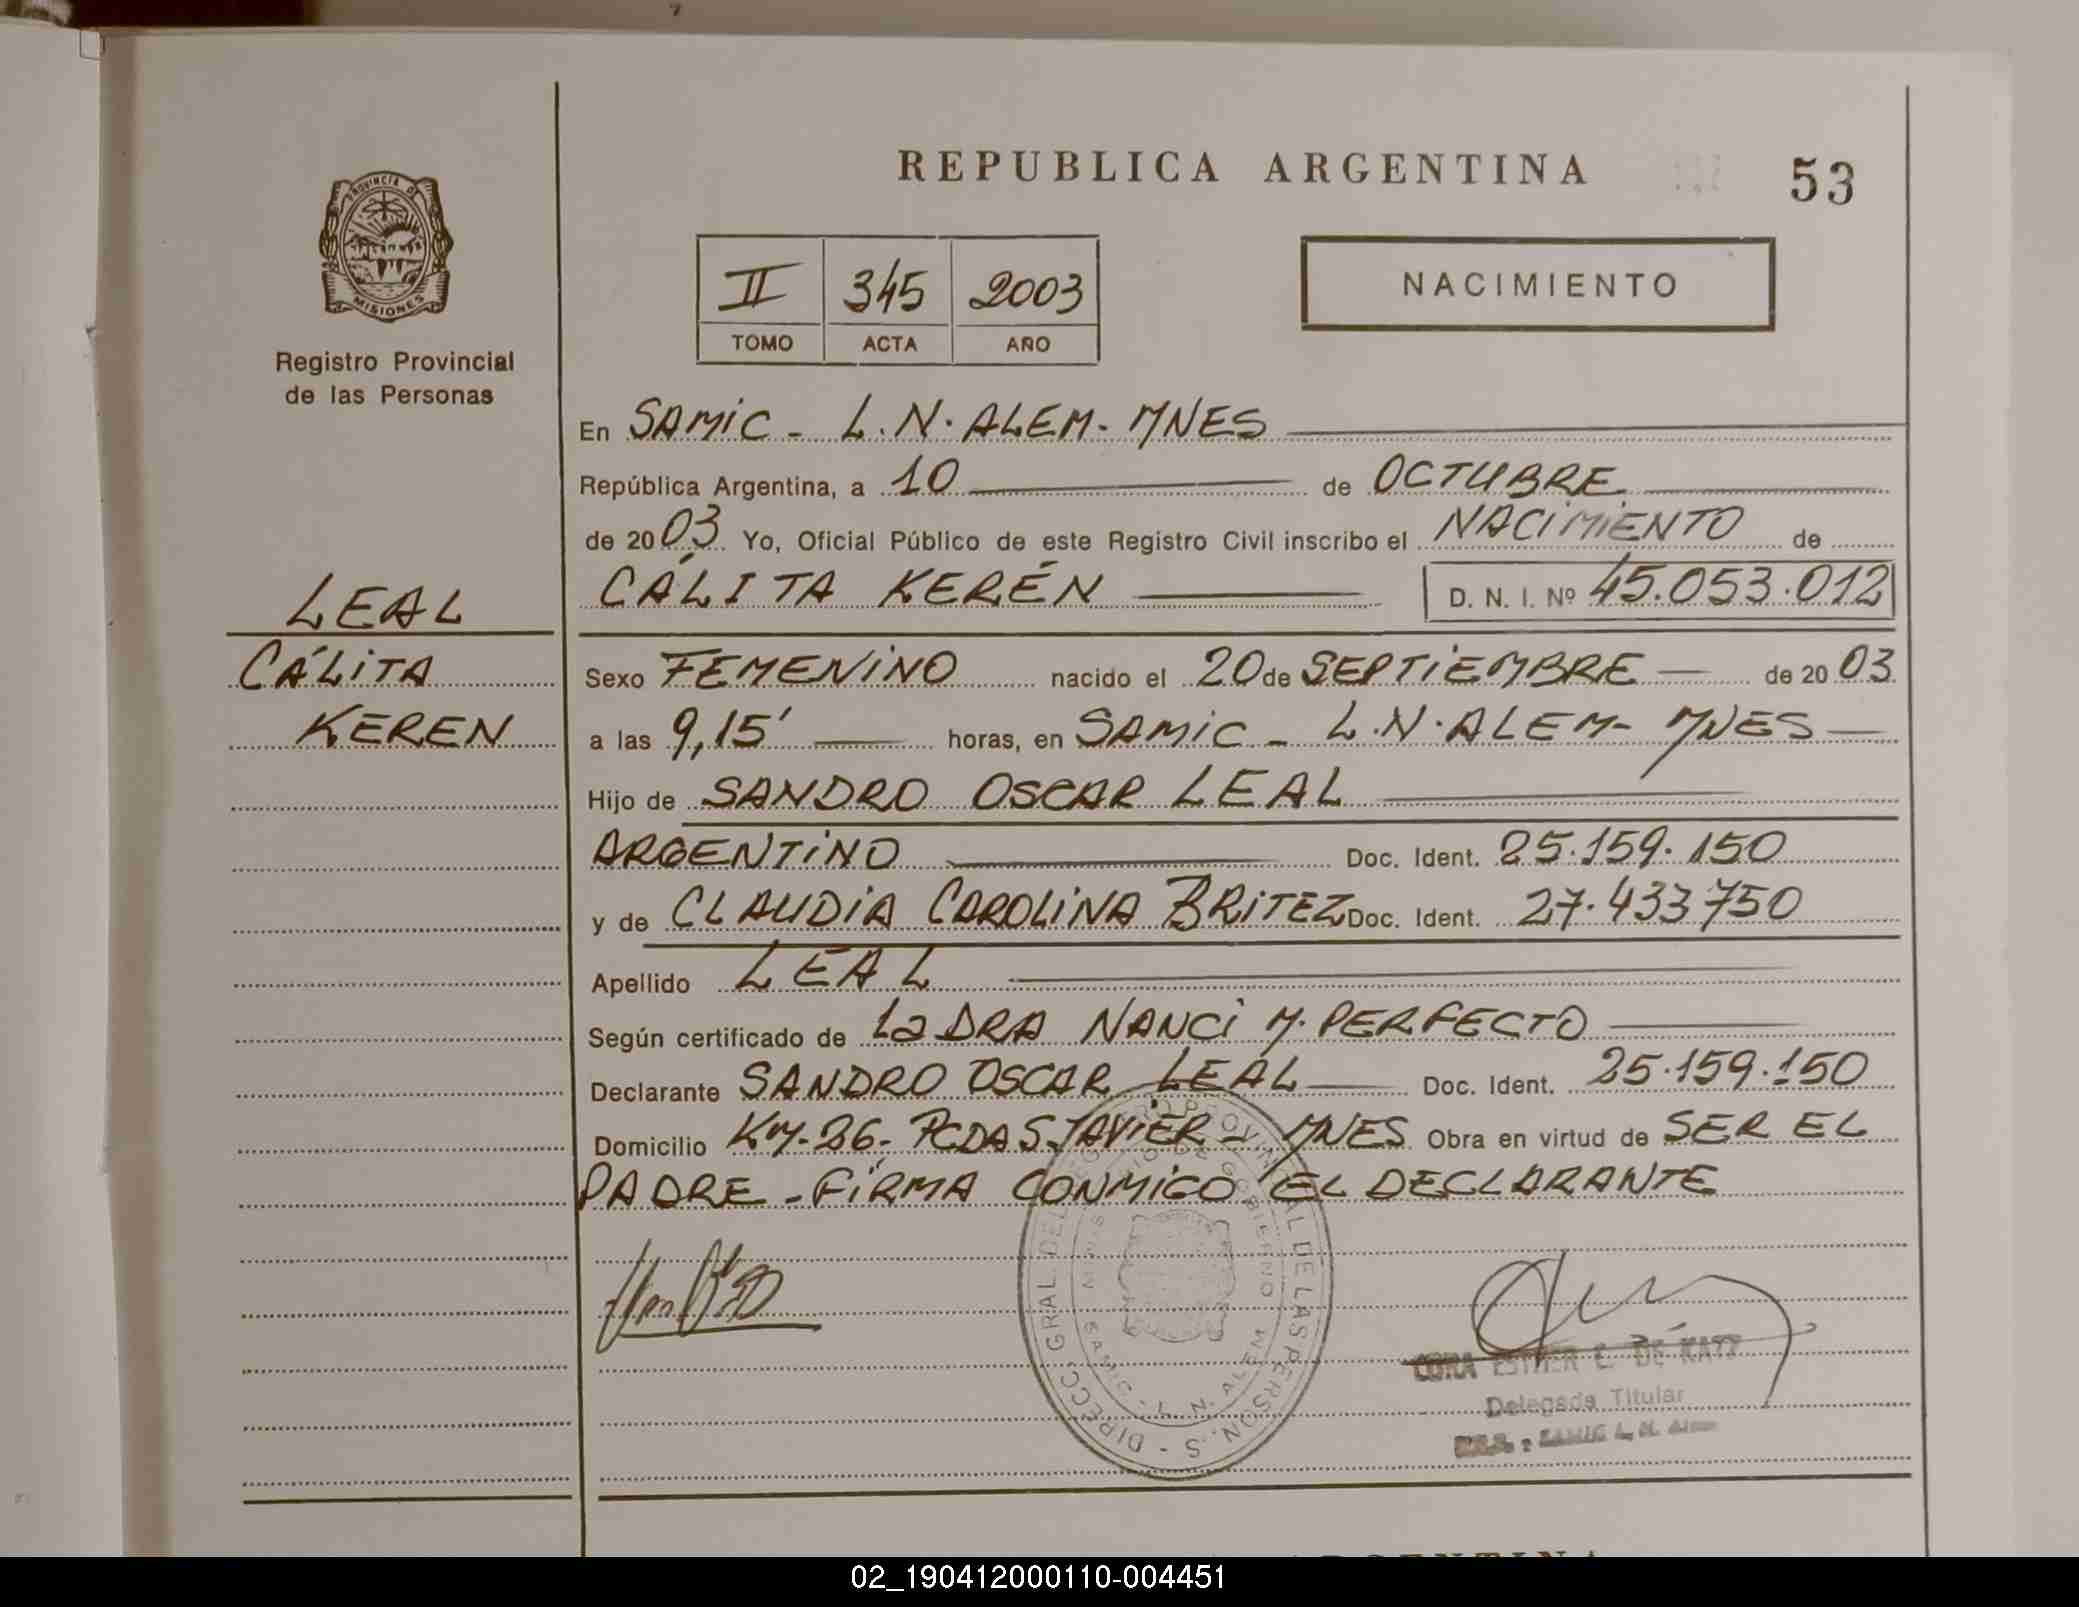 REPUBLICA ARGENTINA
53
PROVINCIA DE
MISIONES
Registro Provincial
de las Personas
II 345 2003
TOMO ACTA AÑO
NACIMIENTO
En SAMIC - L.N. ALEM - MNES
República Argentina, a 10 de OCTUBRE
de 2003 Yo, Oficial Público de este Registro Civil inscribo el NACIMIENTO de
CÁLITA KERÉN D. N. I. Nº 45.053.012
LEAL
CÁLITA
KEREN
Sexo FEMENINO nacido el 20 de SEPTIEMBRE de 2003
a las 9,15' horas, en SAMIC - L.N. ALEM - MNES
Hijo de SANDRO OSCAR LEAL
ARGENTINO Doc. Ident. 25.159.150
y de CLAUDIA CAROLINA BRITEZ Doc. Ident. 27.433750
Apellido LEAL
Según certificado de La DRA NANCI M. PERFECTO
Declarante SANDRO OSCAR LEAL Doc. Ident. 25.159.150
Domicilio KM. 26 - PCDA S. JAVIER - MNES Obra en virtud de SER EL
PADRE - FIRMA CONMIGO EL DECLARANTE
DIRECC. GRAL. DEL REGISTRO PROVINCIAL DE LAS PERSONAS
MINISTERIO DE GOBIERNO
SAMIC - L. N. ALEM
CORA ESTHER E. DE KATZ
Delegada Titular
SAMIC L. N. Alem
02_190412000110-004451